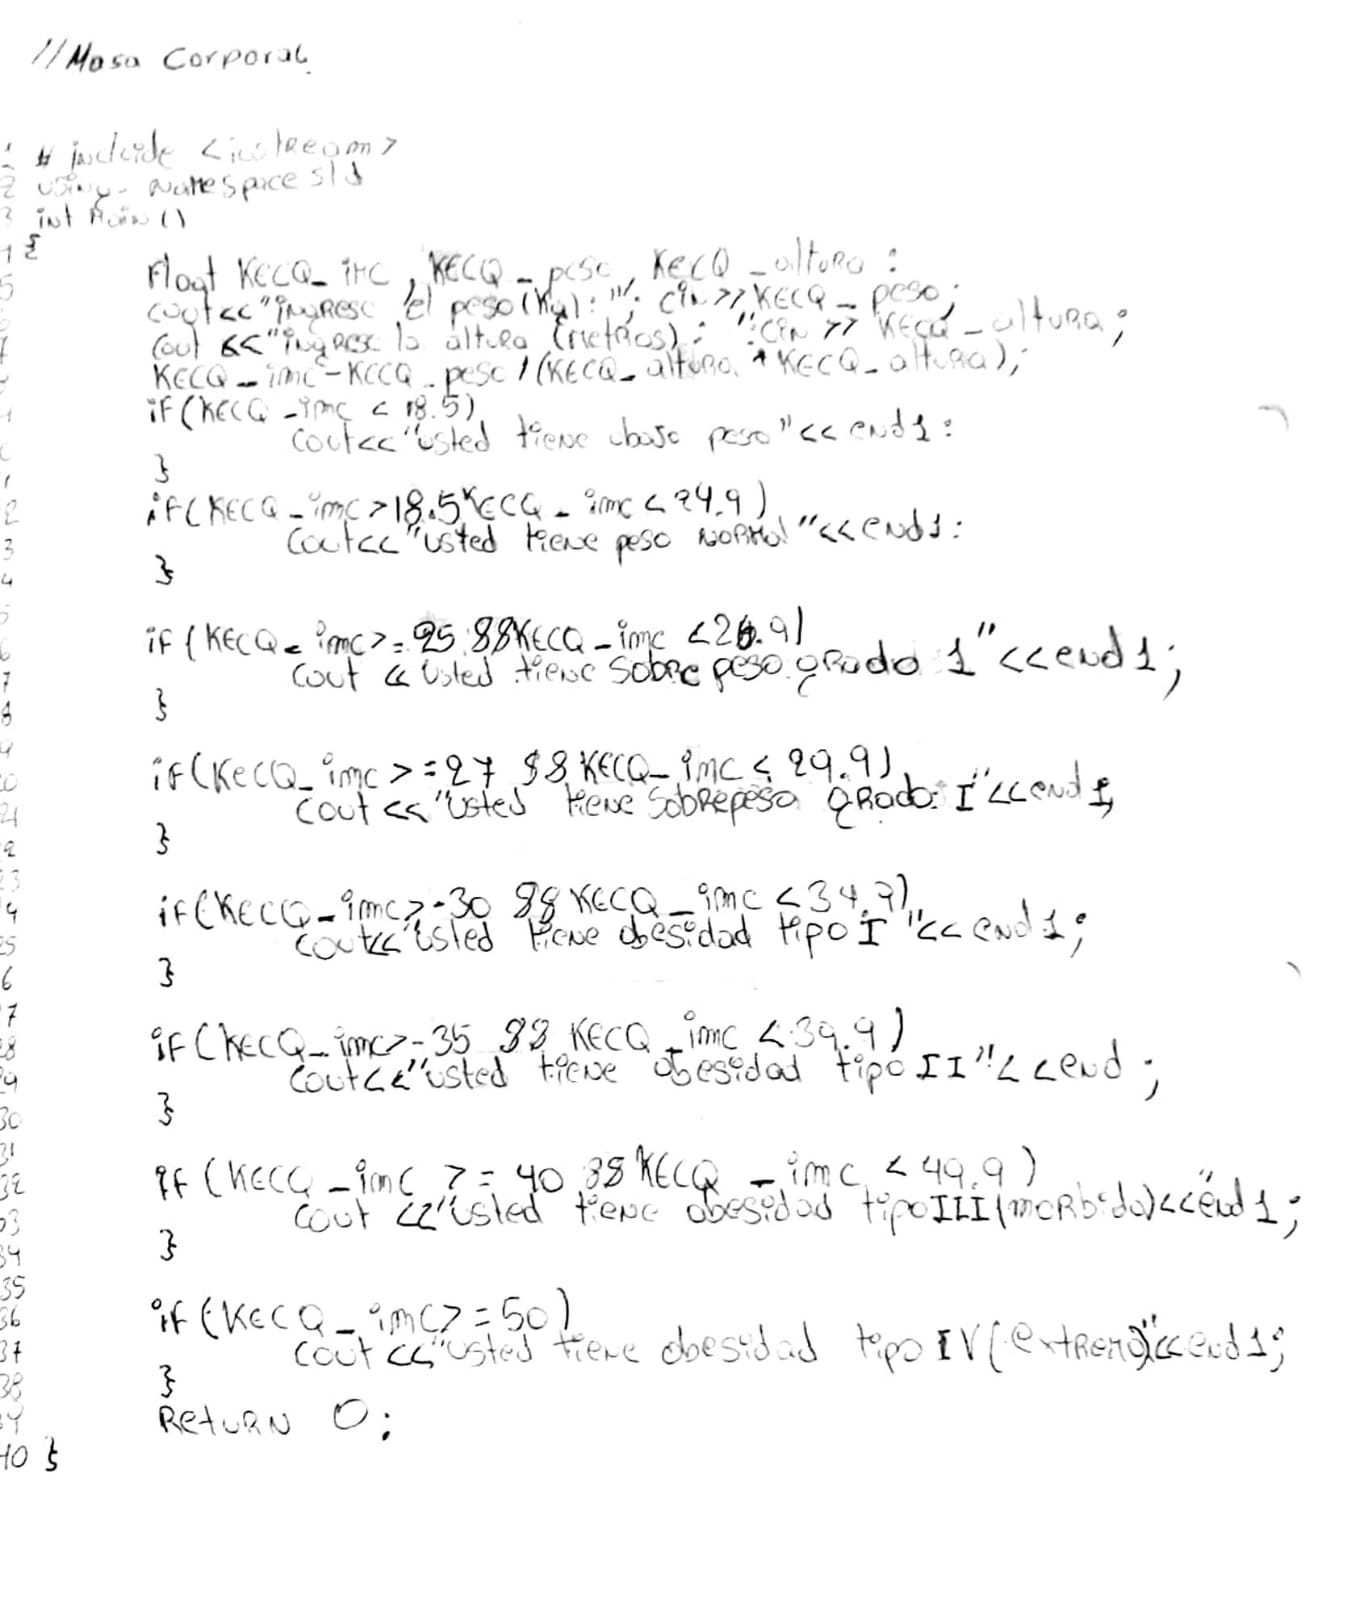 //Masa Corporal
1 # include <iostream>
2 using namespace std
3 int Main()
4 {
5 Float KECQ_imc, KECQ_peso, KECQ_altura:
cout<<"ingrese el peso(Kg): "; cin>>KECQ_peso;
7 Cout <<"ingrese la altura (metros): ":cin >> KECQ_altura;
KECQ_imc-KECQ_peso/(KECQ_altura * KECQ_altura);
if(KECQ_imc < 18.5)
Cout<<"usted tiene bajo peso"<<end1:
1 }
2 if(KECQ_imc>18.5KECQ_imc<24.9)
3 Cout<<"usted tiene peso NORMal"<<end1:
4 }
5
6 if(KECQ_imc>=25 88KECQ_imc <26.9)
7 Cout << Usted tiene Sobrepeso grado 1"<<end1;
8 }
9
20 if(KECQ_imc >=27 88KECQ_imc < 29.9)
21 Cout <<"Usted tiene Sobrepeso grado: I"<<end1;
2 }
23
4 if(KECQ_imc>-30 88KECQ_imc <34.9)
25 Cout<<"usted tiene obesidad tipo I"<<end1;
6 }
7
28 if(KECQ_imc>-35 88 KECQ_imc <39.9)
29 Cout<<"usted tiene obesidad tipo II"<<end ;
30 }
31
32 if (KECQ_imc >= 40 88KECQ_imc < 49.9)
33 Cout <<"usted tiene obesidad tipo III(morbida)<<"end1;
34 }
35
36 if(KECQ_imc>=50)
37 Cout <<"usted tiene obesidad tipo IV(extrema)"<<end1;
38 }
39 Return 0;
40 }